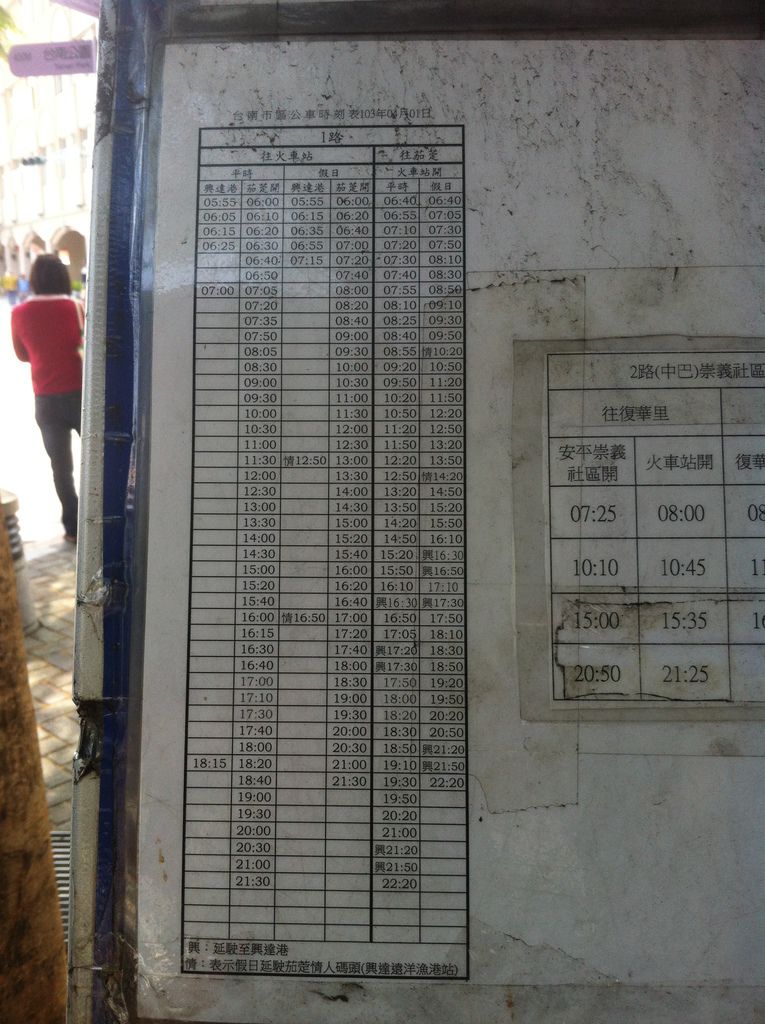 台南公園
Tainan Park
台南市區公車時刻表103年04月01日
1路
往火車站 往茄萣
平時 假日 火車站開
興達港 茄萣開 興達港 茄萣開 平時 假日
05:55 06:00 05:55 06:00 06:40 06:40
06:05 06:10 06:15 06:20 06:55 07:05
06:15 06:20 06:35 06:40 07:10 07:30
06:25 06:30 06:55 07:00 07:20 07:50
06:40 07:15 07:20 07:30 08:10
06:50 07:40 07:40 08:30
07:00 07:05 08:00 07:55 08:50
07:20 08:20 08:10 09:10
07:35 08:40 08:25 09:30
07:50 09:00 08:40 09:50
08:05 09:30 08:55 情10:20
08:30 10:00 09:20 10:50
09:00 10:30 09:50 11:20
09:30 11:00 10:20 11:50
10:00 11:30 10:50 12:20
10:30 12:00 11:20 12:50
11:00 12:30 11:50 13:20
11:30 情12:50 13:00 12:20 13:50
12:00 13:30 12:50 情14:20
12:30 14:00 13:20 14:50
13:00 14:30 13:50 15:20
13:30 15:00 14:20 15:50
14:00 15:20 14:50 16:10
14:30 15:40 15:20 興16:30
15:00 16:00 15:50 興16:50
15:20 16:20 16:10 17:10
15:40 16:40 興16:30 興17:30
16:00 情16:50 17:00 16:50 17:50
16:15 17:20 17:05 18:10
16:30 17:40 興17:20 18:30
16:40 18:00 興17:30 18:50
17:00 18:30 17:50 19:20
17:10 19:00 18:00 19:50
17:30 19:30 18:20 20:20
17:40 20:00 18:30 20:50
18:00 20:30 18:50 興21:20
18:15 18:20 21:00 19:10 興21:50
18:40 21:30 19:30 22:20
19:00 19:50
19:30 20:20
20:00 21:00
20:30 興21:20
21:00 興21:50
21:30 22:20
興：延駛至興達港
情：表示假日延駛茄萣情人碼頭(興達遠洋漁港站)
2路(中巴)崇義社區
往復華里
安平崇義社區開 火車站開 復華
07:25 08:00 08
10:10 10:45 11
15:00 15:35 16
20:50 21:25